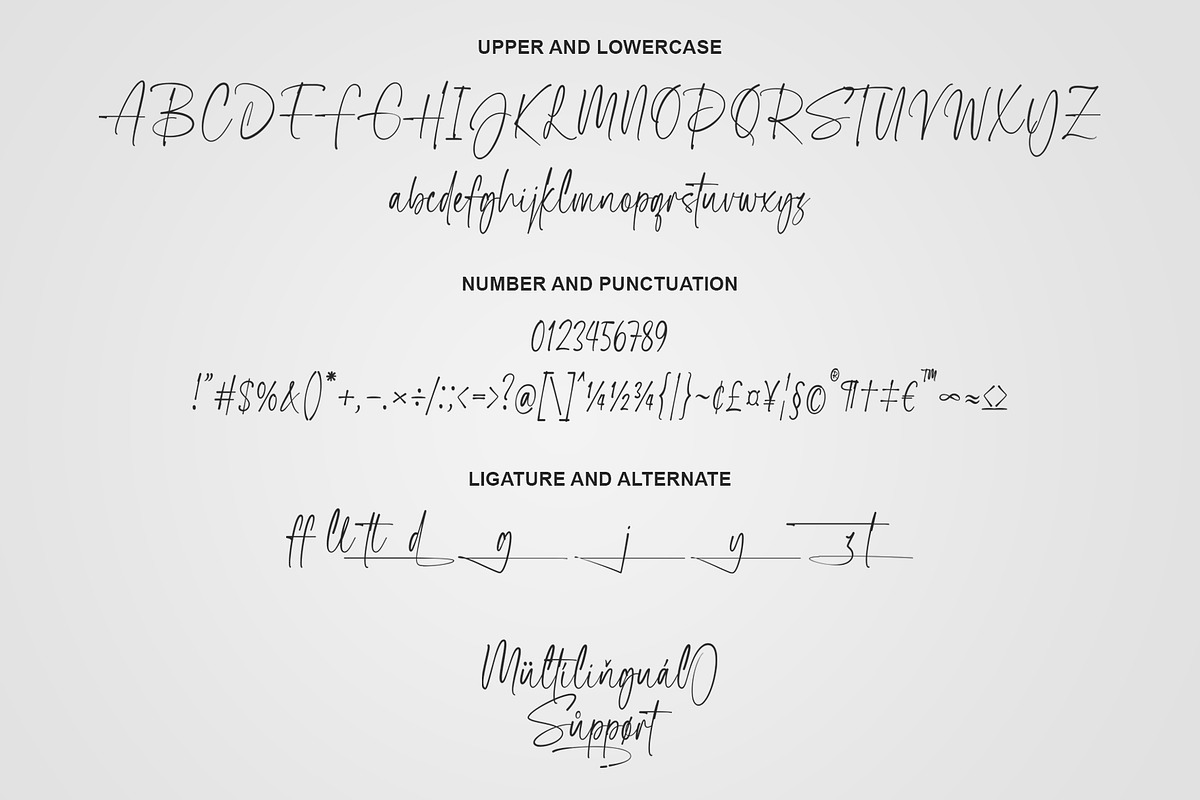 UPPER AND LOWERCASE
ABCDEFGHIJKLMNOPQRSTUVWXYZ
abcdefghijklmnopqrstuvwxyz
NUMBER AND PUNCTUATION
0123456789
!"#$%&()*+,-.×÷/:;<=>?@[\]^¼½¾{|}~¢£¤¥¦§©®¶†‡€™∞≈≤≥
LIGATURE AND ALTERNATE
ff ll tt d g j y z t
Mültíliňguál
Sůppørt